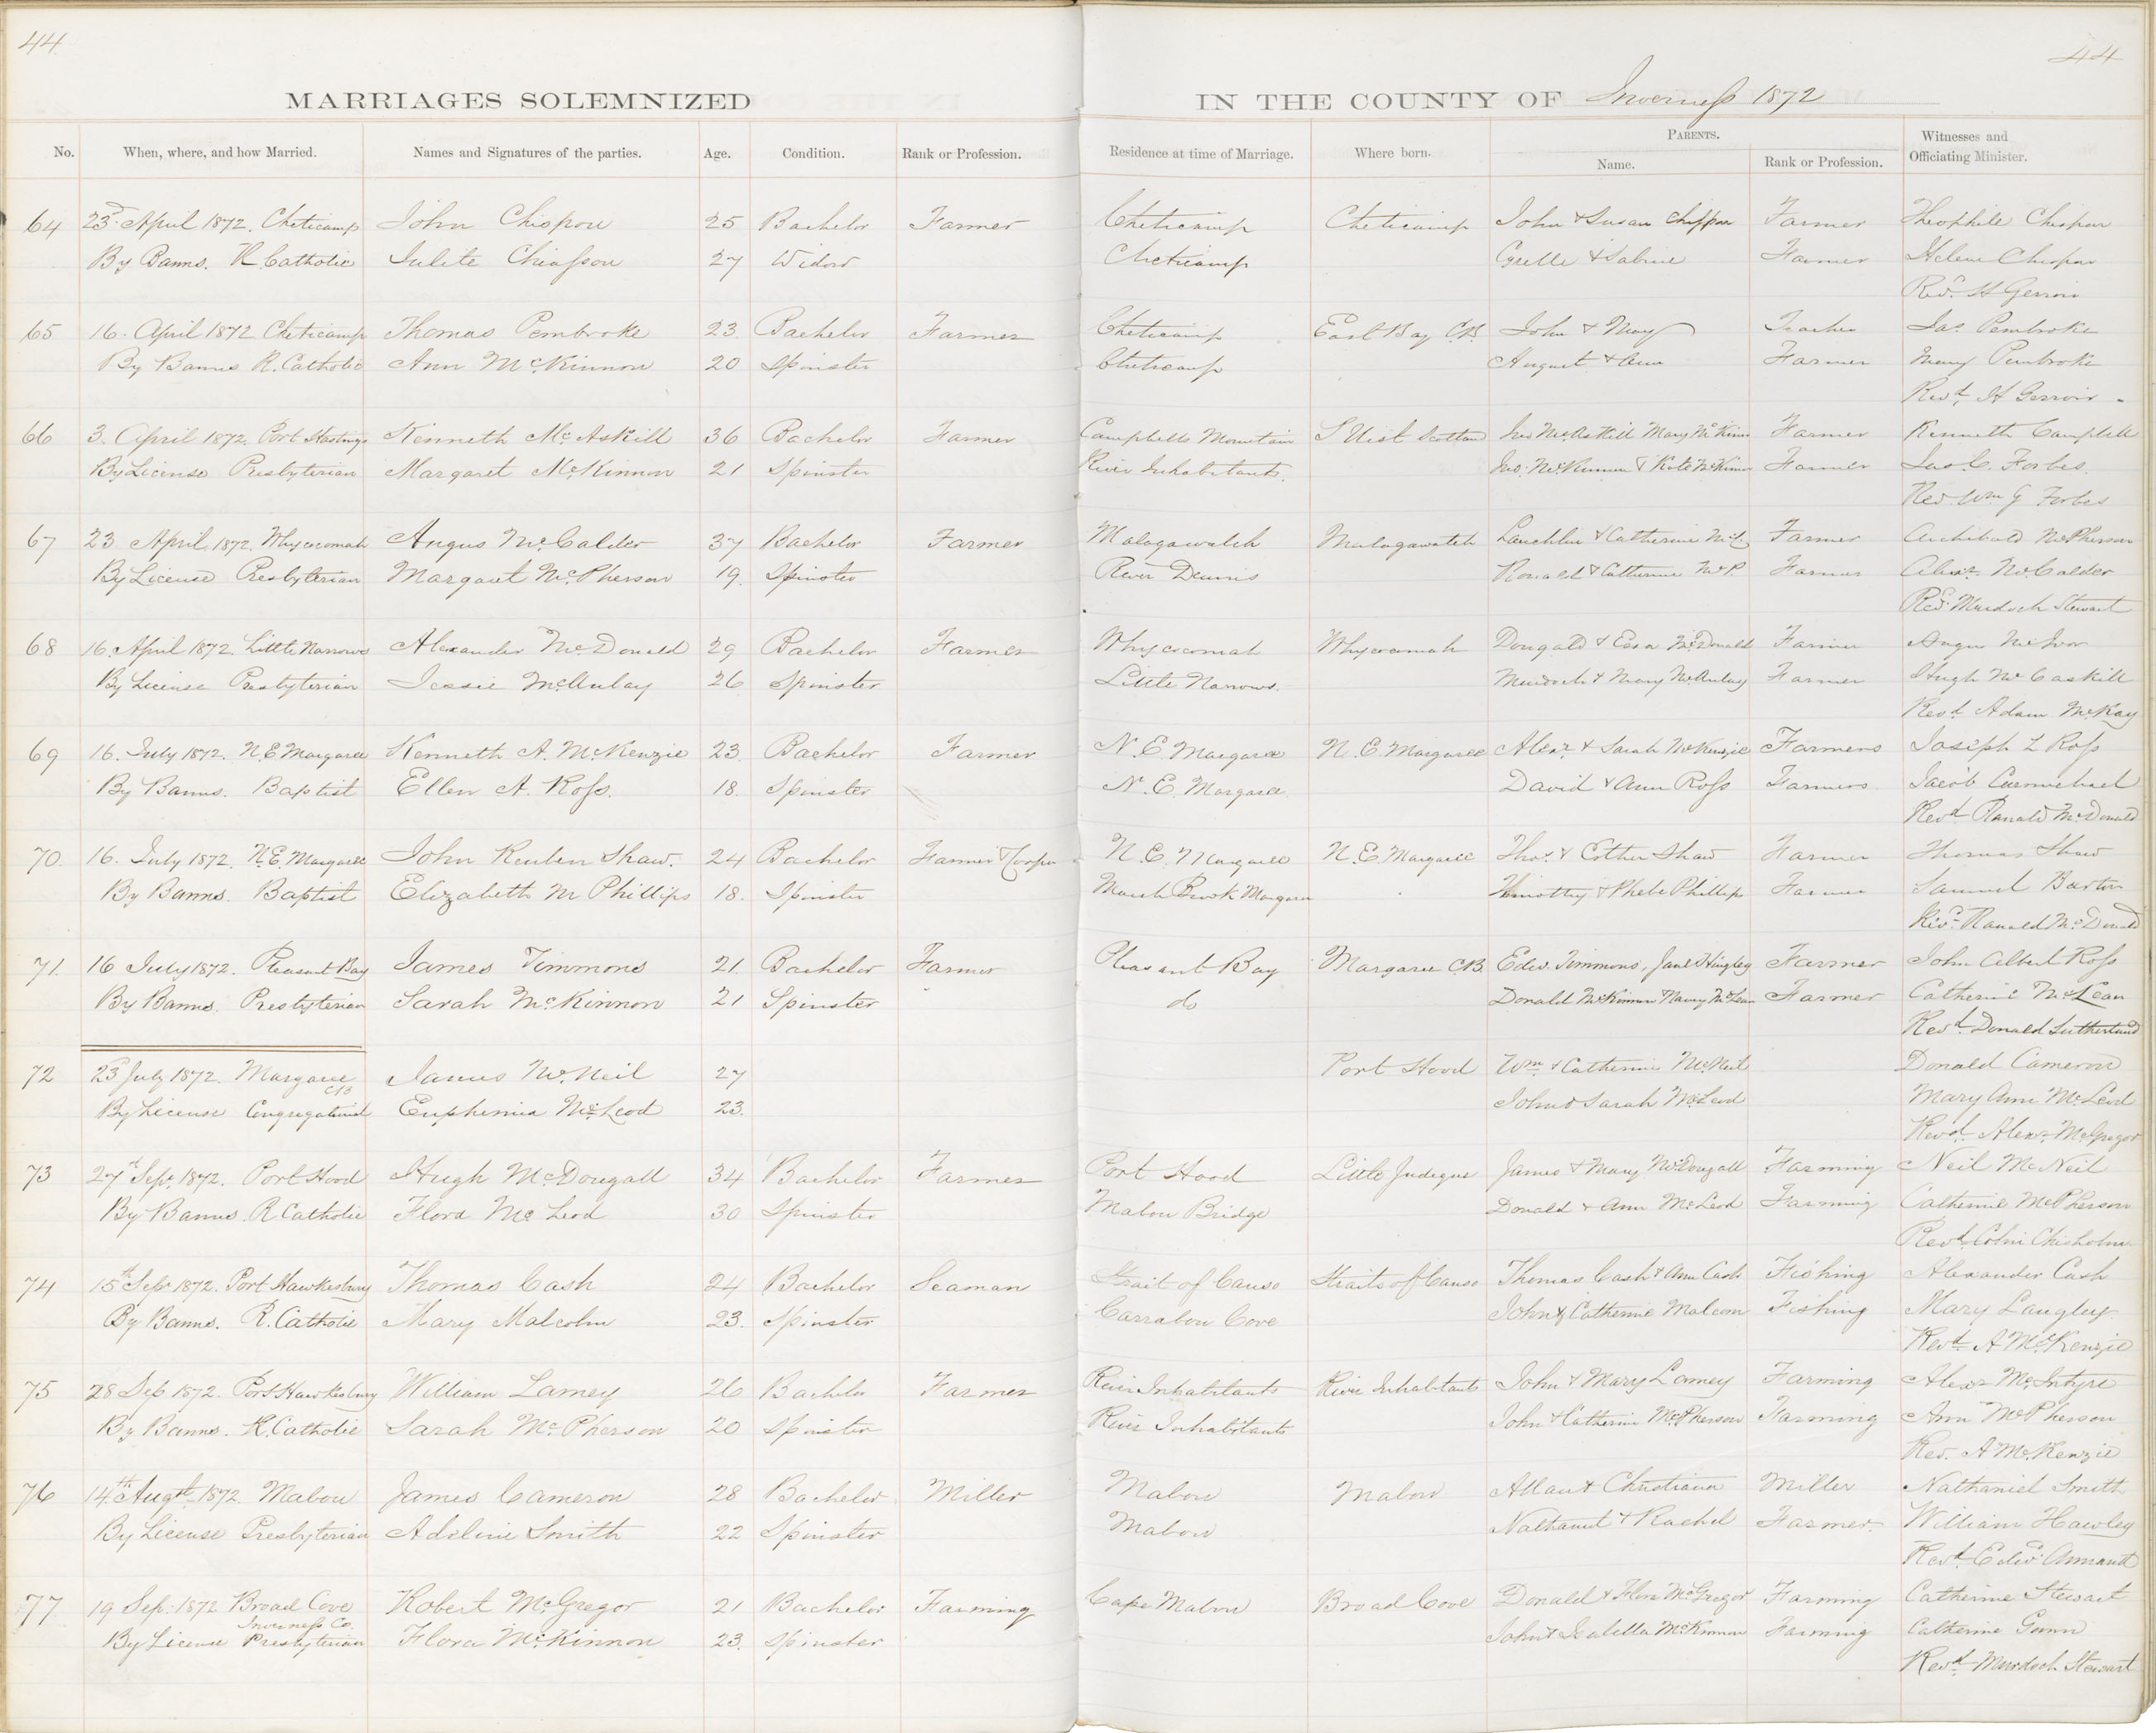 44
44
MARRIAGES SOLEMNIZED IN THE COUNTY OF Inverness 1872
No. When, where, and how Married. Names and Signatures of the parties. Age. Condition. Rank or Profession. Residence at time of Marriage. Where born. PARENTS. Name. Rank or Profession. Witnesses and Officiating Minister.
64 23d April 1872. Cheticamp John Chispou 25 Bachelor Farmer Cheticamp Cheticamp John & Susan Farmer Theophile
By Banns. R. Catholic Julite Chiasson 27 Widow Cheticamp & Sabine Farmer Helene
Revd. H Gerroir
65 16. April 1872 Cheticamp Thomas Pembroke 23. Bachelor Farmer Cheticamp East Bay C.B. John & Mary Teacher Jas Pembroke
By Banns R. Catholic Ann McKinnon 20 Spinster Cheticamp August & Ann Farmer Mary Pembroke
Revd. H Gerroir
66 3. April 1872. Port Hastings Kenneth McAskill 36 Bachelor Farmer Campbells Mountain S Uist Scotland Jno McAskill Mary McKinn Farmer Kenneth Campbell
By License Presbyterian Margaret McKinnon 21 Spinster River Inhabitants. Jno. McKinnon & Kate McKinn Farmer Jas. C. Forbes.
Rev Wm G Forbes
67 23 April 1872. Whycocomah Angus McCalder 37 Bachelor Farmer Malagawatch Malagawatch Lauchlin & Catherine McC. Farmer Archibald McPherson
By License Presbyterian Margaret McPherson 19. Spinster River Dennis Ronald & Catherine McP. Farmer Alexr. McCalder
Revd. Murdoch Stewart
68 16. April 1872. Little Narrows Alexander McDonald 29 Bachelor Farmer Whycocomah Whycocomah Dougald & McDonald Farmer Angus McIvor
By License Presbyterian Jessie McAulay 26 Spinster Little Narrows. Murdoch & Mary McAulay Farmer Hugh McCaskill
Revd. Adam McKay
69 16. July 1872. N.E Margaree Kenneth A. McKenzie 23. Bachelor Farmer N. E. Margaree N. E. Margaree Alexr. & Sarah McKenzie Farmers Joseph L Ross
By Banns. Baptist Ellen A. Ross. 18. Spinster N. E. Margaree. David & Ann Ross Farmers. Jacob Carmichael
Revd. Ranald McDonald
70. 16. July 1872. N.E. Margaree John Reuben Shaw. 24 Bachelor Farmer & Cooper N. E. Margaree N. E. Margaree Thos. & Esther Shaw Farmer Thomas Shaw
By Banns. Baptist Elizabeth M Phillips 18. Spinster Marsh Brook Margaree Timothy & Phebe Phillips Farmer Samuel Burton
Revd. Ranald McDonald
71. 16 July 1872. Pleasant Bay James Timmons 21. Bachelor Farmer Pleasant Bay Margaree C.B. Edw. Timmons, Jane Hingley Farmer John Albert Ross
By Banns. Presbyterian Sarah McKinnon 21 Spinster do Donald McKinnon & Nancy McLean Farmer Catherine McLean
Revd. Donald Sutherland
72 23 July 1872. Margaree James McNeil 27 Port Hood Wm & Catherine McNeil Donald Cameron
CB
By License Congregational Euphemia McLeod 23. John & Sarah McLeod Mary Ann McLeod
Revd. Alexr. McGregor
73 27th Sepr. 1872. Port Hood Hugh McDougall 34 Bachelor Farmer Port Hood Little Judique James & Mary McDougall Farming Neil McNeil
By Banns R Catholic Flora McLeod 30 Spinster Mabou Bridge Donald & Ann McLeod Farming Catherine McPherson
Revd. Colin Chisholm.
74 15th Sepr 1872. Port Hawkesbury Thomas Cash 24 Bachelor Seaman Strait of Canso Straits of Canso Thomas Cash & Ann Cash Fishing Alexander Cash
By Banns. R. Catholic Mary Malcolm 23. Spinster Carrabou Cove John & Catherine Malcom Fishing Mary Langley
Revd. A McKenzie
75 28 Sep 1872. Port Hawkesbury William Lamey 26 Bachelor Farmer River Inhabitants River Inhabitants John & Mary Lamey Farming Alexr McIntyre
By Banns. R. Catholic Sarah McPherson 20 Spinster River Inhabitants John & Catherine McPherson Farming Ann McPherson
Rev. A McKenzie
76 14th Augst. 1872. Mabou James Cameron 28 Bachelor. Miller Mabou Mabou Allan & Christiana Miller Nathaniel Smith
By License Presbyterian Adeline Smith 22 Spinster Mabou Nathaniel & Rachel Farmer. William Hawley
Revd. Edwd. Annand
77 19 Sep. 1872 Broad Cove Robert McGregor 21 Bachelor Farming Cape Mabou Broad Cove Donald & Flora McGregor Farming Catherine Stewart
Inverness Co.
By License Presbyterian Flora McKinnon 23. Spinster John & Isabella McKinnon Farming Catherine Gunn
Revd. Murdoch Stewart